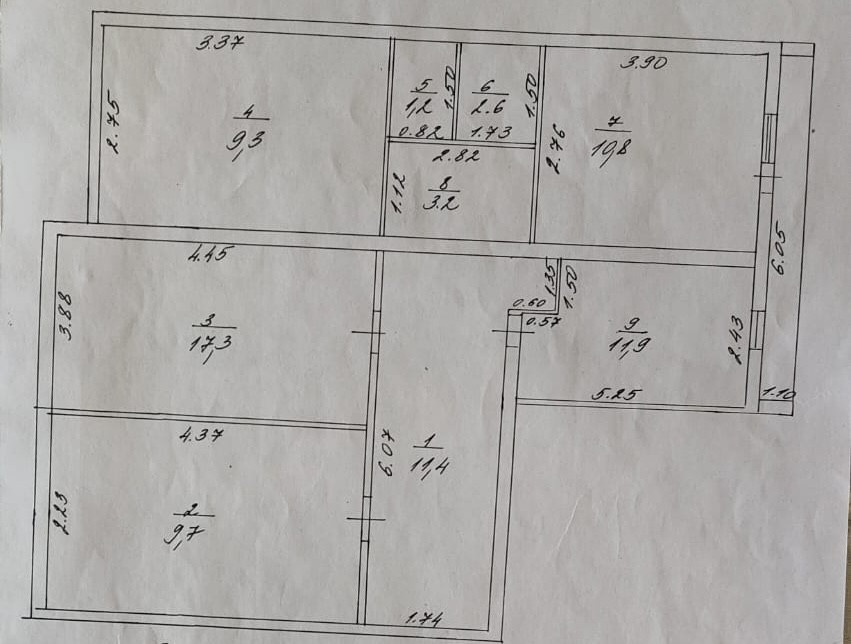 3.37
2.75
4
9,3
5
1,2
1.50
0.82
6
2.6
1.50
1.73
3.90
7
10,8
2.76
2.82
1.12
8
3.2
6.05
4.45
3.88
3
17,3
1.35
1.50
0.60
0.57
9
11,9
2.43
5.25
1.10
4.37
2.23
2
9,7
6.07
1
11,4
1.74